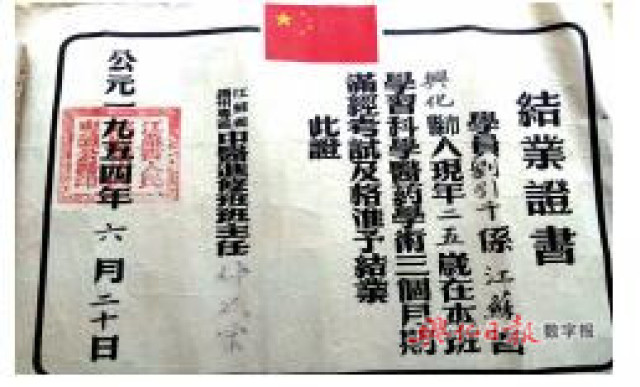 結業證書
學員劉引千係江蘇省
興化縣市人現年二五歲在本班
學習科學醫药學術三個月期
滿經考試及格准予結業
此證
江蘇省
中醫進修班班主任
公元一九五四年六月二十日
興化日報 数字报